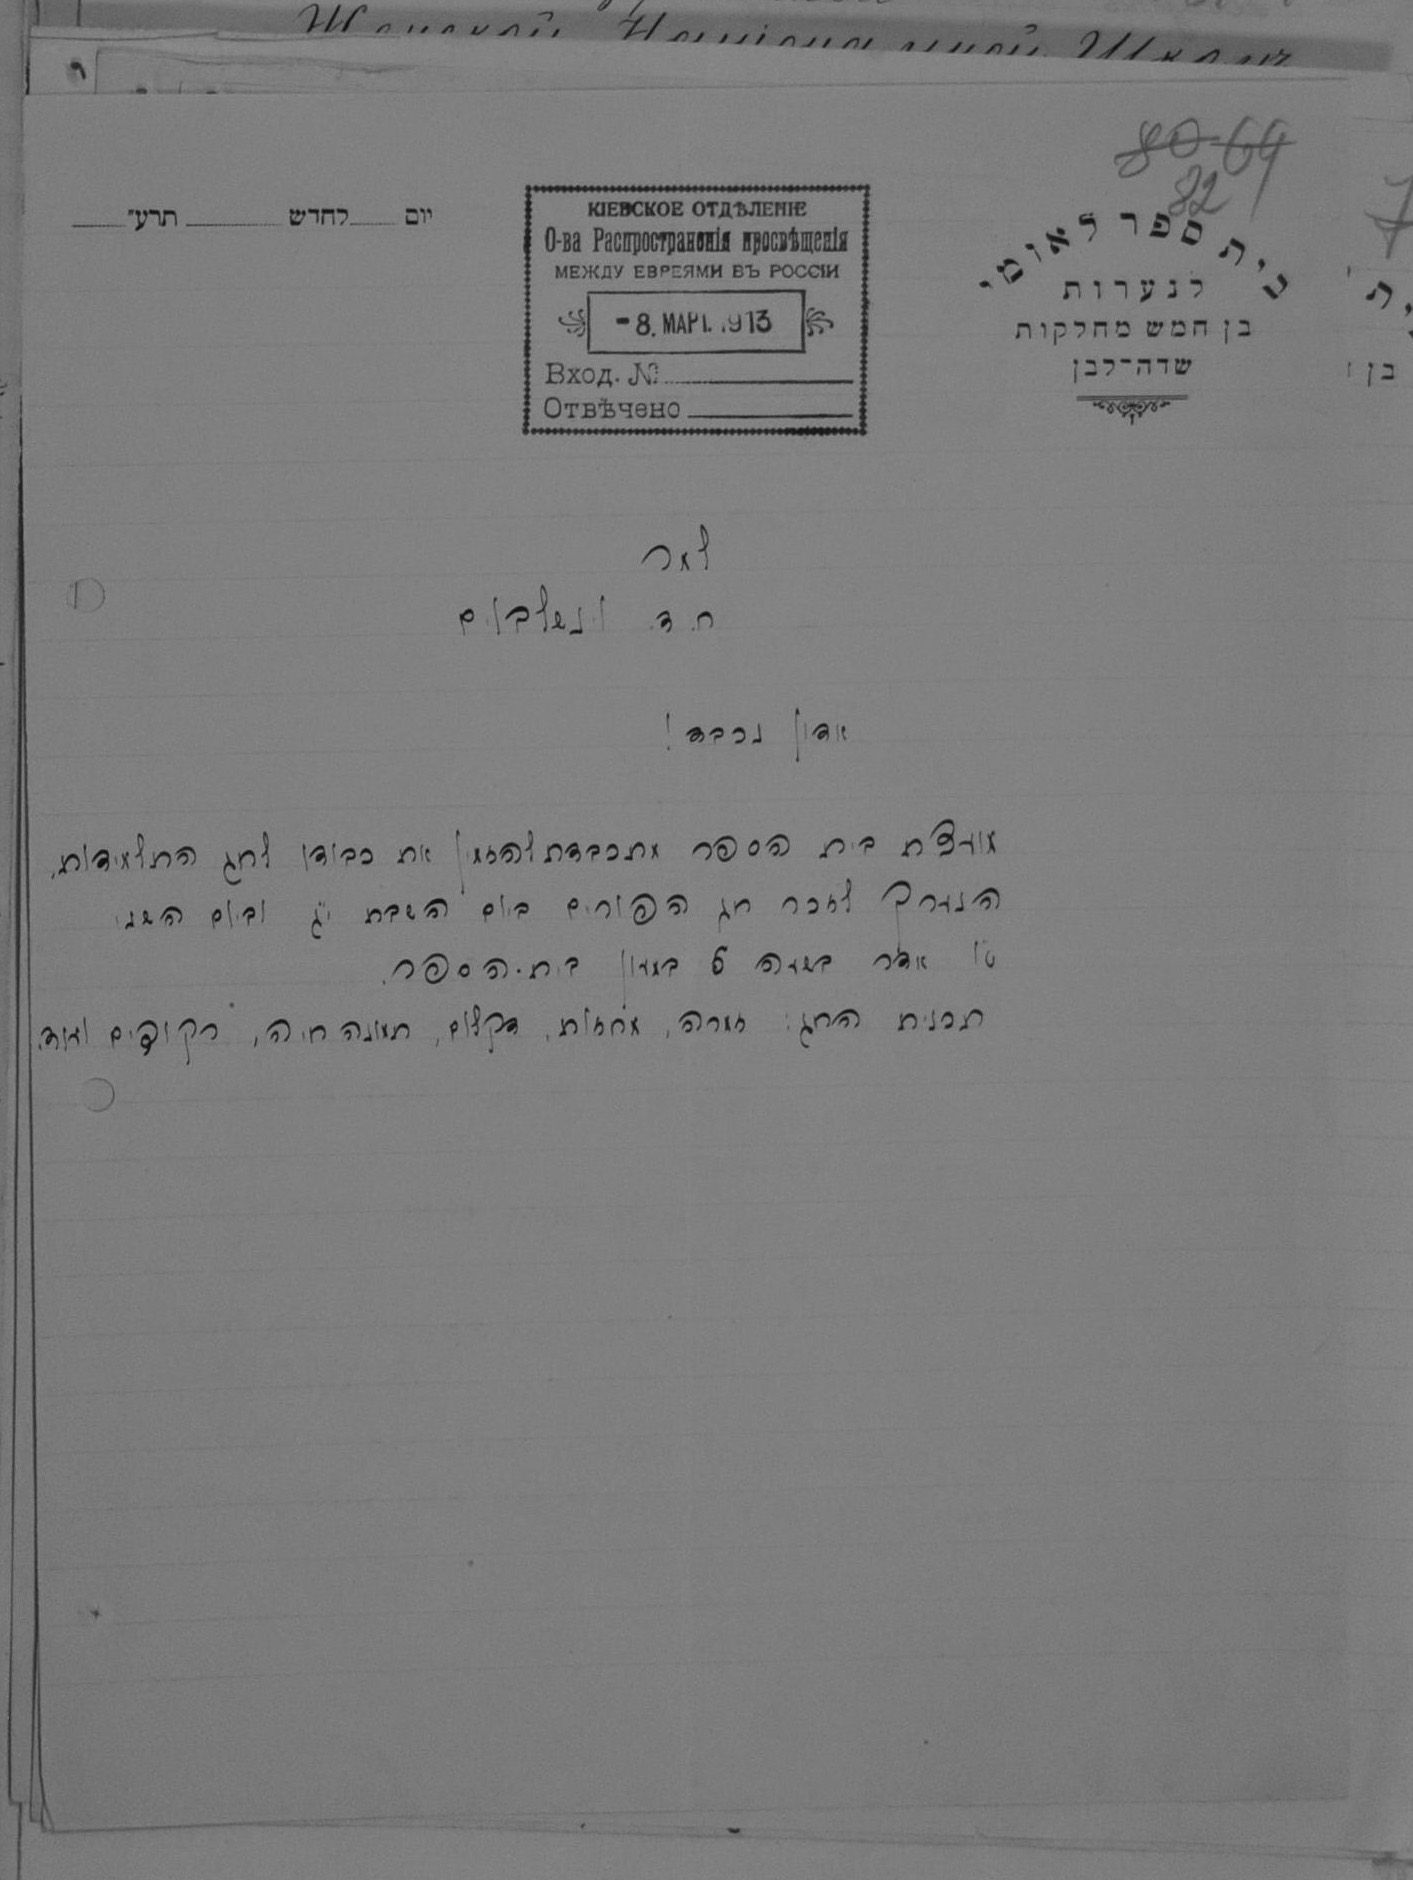 80 69
82
בית ספר לאומי
לנערות
בן חמש מחלקות
שדה־לבן
КІЕВСКОЕ ОТДѢЛЕНІЕ
О-ва Распространенія просвѣщенія
МЕЖДУ ЕВРЕЯМИ ВЪ РОССІИ
-8. МАРТ. 1913
Вход. №
Отвѣчено
יום לחדש תרע״
למר
ח. ד. וינשלבוים
אדון נכבד!
מועצת בית הספר מתכבדת להזמין את כבודו לחג התלמידות,
הנערך לזכר חג הפורים ביום השבת י״ג וביום השני
ט״ו אדר בשעה 6 במעון בית-הספר.
תכנית החג: זמרה, מחזות, דקלום, תמונה חיה, רקודים ועוד.